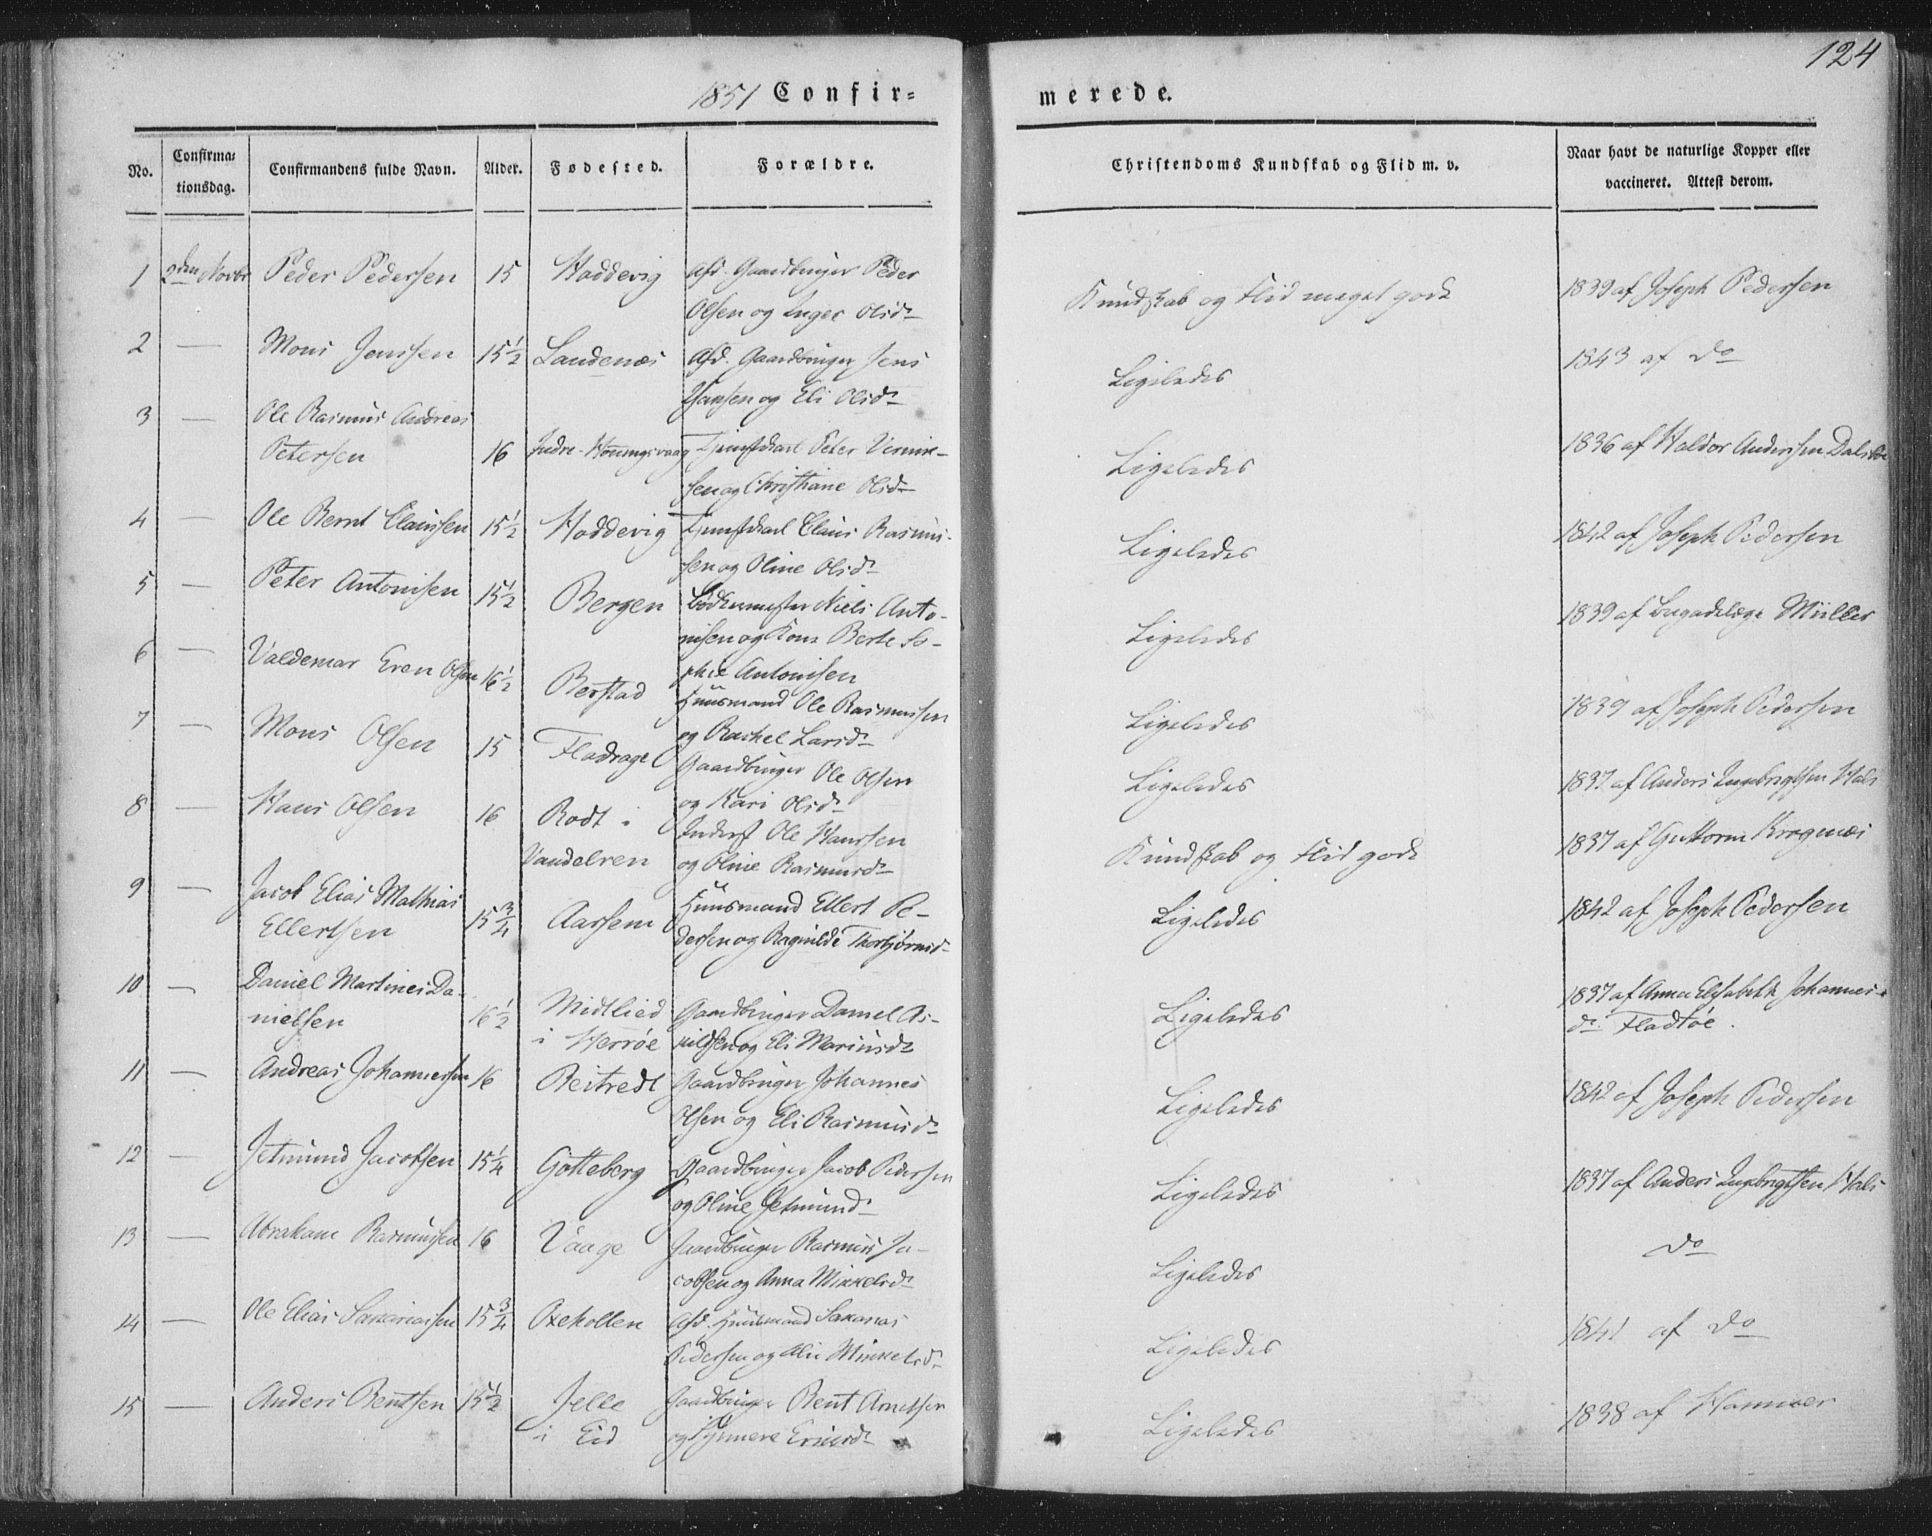 124
1851 Confir=
merede.
No.
Confirma=
tionsdag.
Confirmandens fulde Navn.
Alder.
Fødested.
Forældre.
Christendoms Kundskab og Flid m. v.
Naar havt de naturlige Kopper eller
vaccineret. Attest derom.
1 2den Novbr Peder Pedersen 15 Hoddevig Afd. Gaardbruger Peder
Olsen og Inger Olsd.
Kundskab og Flid meget godt
1839 af Joseph Pedersen
2 — Mons Jenssen 15 1/2 Sandenæs Afd. Gaardbruger Jens
Hansen og Eli Olsd.
Ligeledes
1843 af Do
3 — Ole Rasmus Andreas
Petersen 16 Indre-Honningsvaag Tjenstekarl Peter
sen og Christiane Olsd.
Ligeledes
1836 af Haldor Andersen
4 — Ole Bernt Claussen 15 1/2 Hoddevig Tjenstekarl Claus Rasmus-
sen og Oline Olsd.
Ligeledes
1842 af Joseph Pedersen
5 — Peter Antonisen 15 1/2 Bergen Bødkermester Niels Anto-
nisen og Kone Berte So-
phie Antonisen
Ligeledes
1839 af Müller
6 — Valdemar Eren Olsen 16 1/2 Berstad Huusmand Ole Rasmussen
og Rachel Larsd.
Ligeledes
1839 af Joseph Pedersen
7 — Mons Olsen 15 Gaardbruger Ole Olsen
og Kari Olsd.
Ligeledes
1837 af Anders Ingebrigtsen Hals
8 — Hans Olsen 16 Rodt i
Vandelven
Inderst Ole Hanssen
og Oline Rasmusd.
Kundskab og Flid godt
1837 af Guttorm Kragenæs
9 — Jacob Elias Mathias
Ellertsen 15 3/4 Aarsem Huusmand Ellert Pe-
dersen og Ragnilde Thorbjørnsd.
Ligeledes
1842 af Joseph Pedersen
10 — Daniel Martines Da-
nielsen 16 1/2 Midtlied
i Herrøe
Gaardbruger Daniel As-
kildsen og Eli Mariusd.
Ligeledes
1837 af Anna Elisabeth Johannes-
d. Fladtøe.
11 — Andreas Johannessen 16 Beitredt Gaardbruger Johannes
Olsen og Eli Rasmusd.
Ligeledes
1842 af Joseph Pedersen
12 — Jetmund Jacobsen 15 1/4 Gotteberg Gaardbruger Jacob Pedersen
og Oline Jetmundd.
Ligeledes
1837 af Anders Ingebrigtsen Hals
13 — Abraham Rasmussen 16 Vaage Gaardbruger Rasmus Ja-
cobsen og Anna Mikkelsd.
Ligeledes
Do
14 — Ole Elias Sakariassen 15 3/4 Oxehollen Afd. Huusmand Sakarias
Pedersen og Mikkelsd.
Ligeledes
1841 af Do
15 — Anders Bentsen 15 1/2 Jelle
i Eid
Gaardbruger Bent Arnetsen
og
Ligeledes
1838 af Hammer